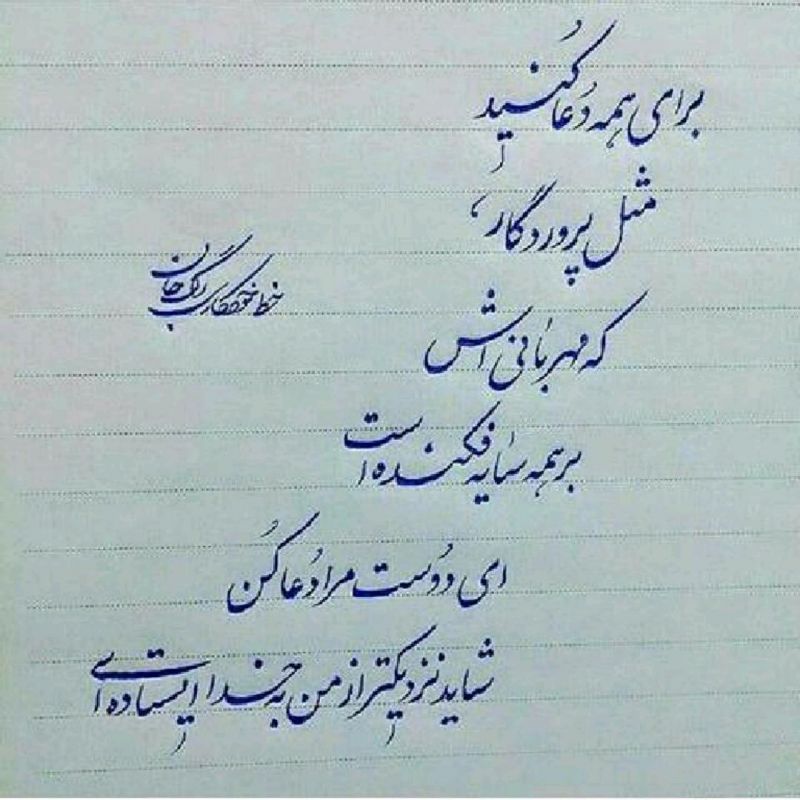 برای همه دعا کنید
مثل پروردگار،
که مهربانی اش
بر همه سایه فکنده است
ای دوست مرا دعا کن
شاید نزدیکتر از من به خدا ایستاده ای
خط خودکاری رگ جان